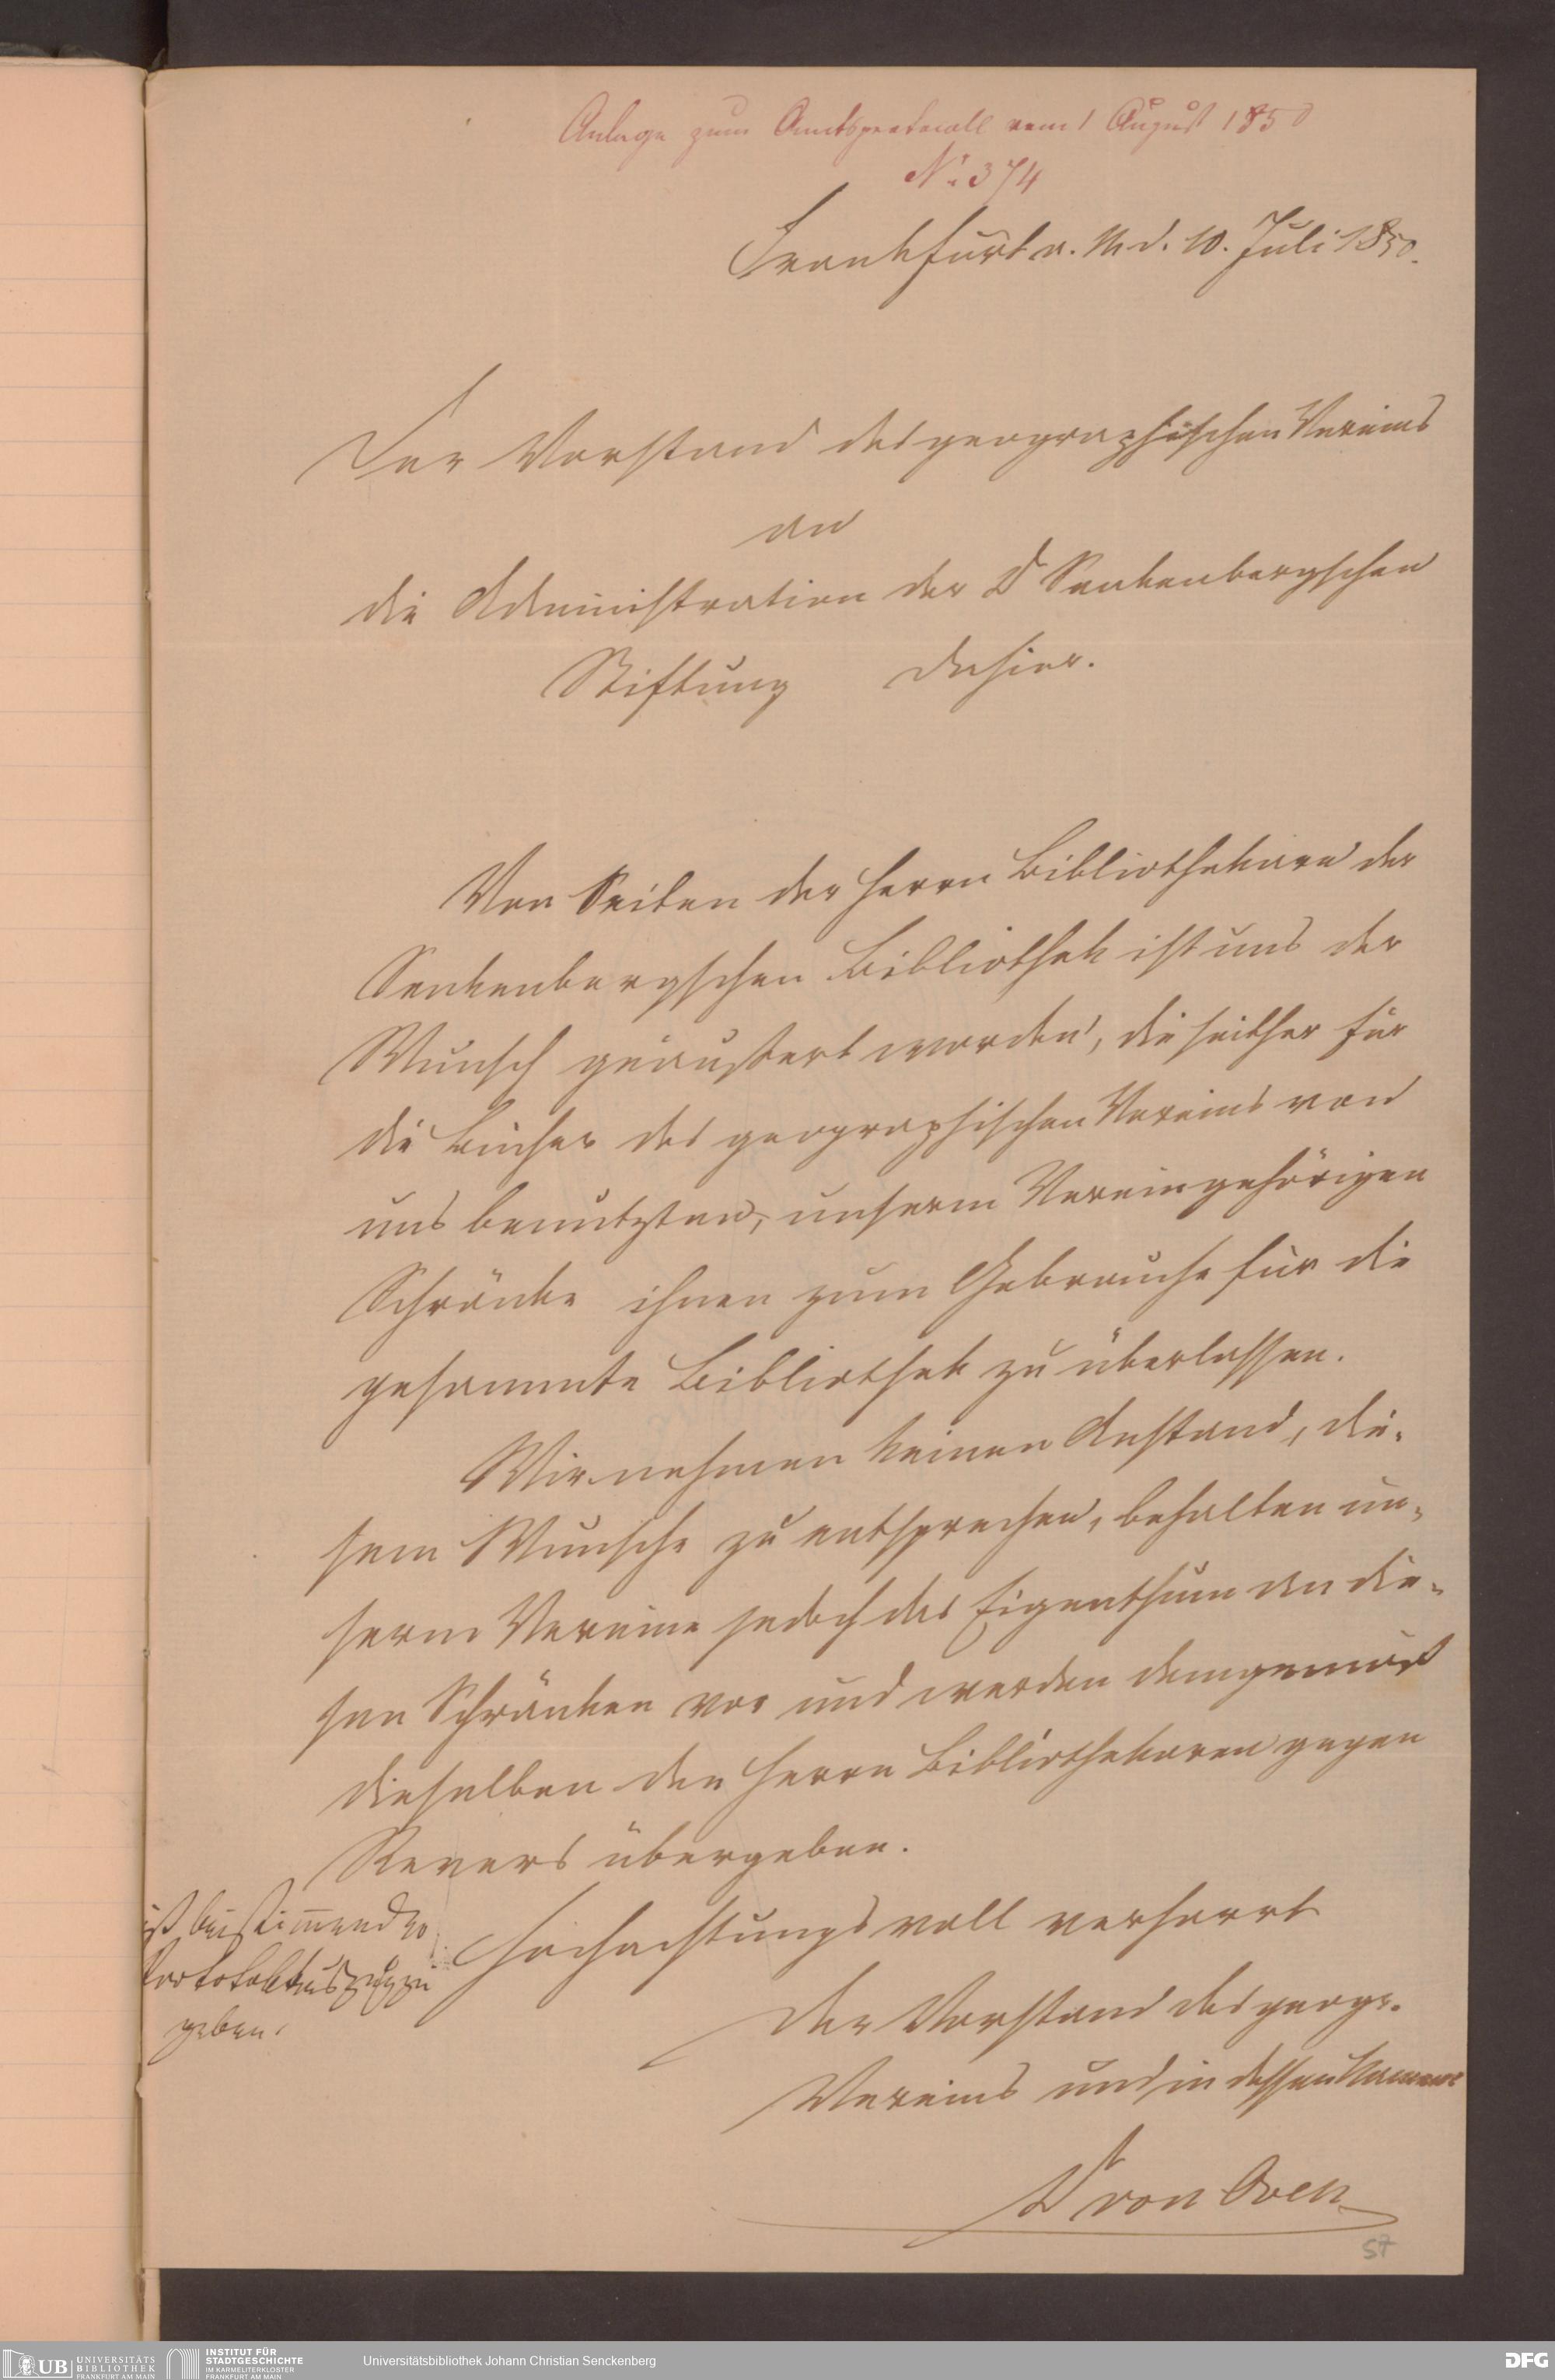 Anlage zum Amtsprotocoll vom 1 August 1850
No. 374
Frankfurt a. M. d. 10. Juli 1850.
Der Vorstand des geographischen Vereins
an
die Administration der Dr Senkenbergschen
Stiftung dahier.
Von Seiten der Herrn Bibliothekare der
Senkenbergschen Bibliothek ist uns der
Wunsch geäussert worden, die seither für
die Bücher des geographischen Vereins von
uns benutzten, unserm Verein gehörigen
Schränke ihnen zum Gebrauche für die
gesammte Bibliothek zu überlassen.
Wir nehmen keinen Anstand, die-
sem Wunsche zu entsprechen, behalten un-
serm Vereine jedoch das Eigenthum an die-
sen Schränken vor und werden demgemäß
dieselben den Herrn Bibliothekaren gegen
Revers übergeben.
Hochachtungsvoll verharrt
Der Vorstand des geogr.
Vereins und in dessen Namen
Dr von Oven
ist beistimmend
Protokollauszug zu
geben.
57
UB UNIVERSITÄTS
BIBLIOTHEK
FRANKFURT AM MAIN
INSTITUT FÜR
STADTGESCHICHTE
IM KARMELITERKLOSTER
FRANKFURT AM MAIN
Universitätsbibliothek Johann Christian Senckenberg
DFG